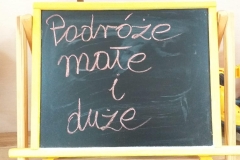 Podróże
małe
i
duże